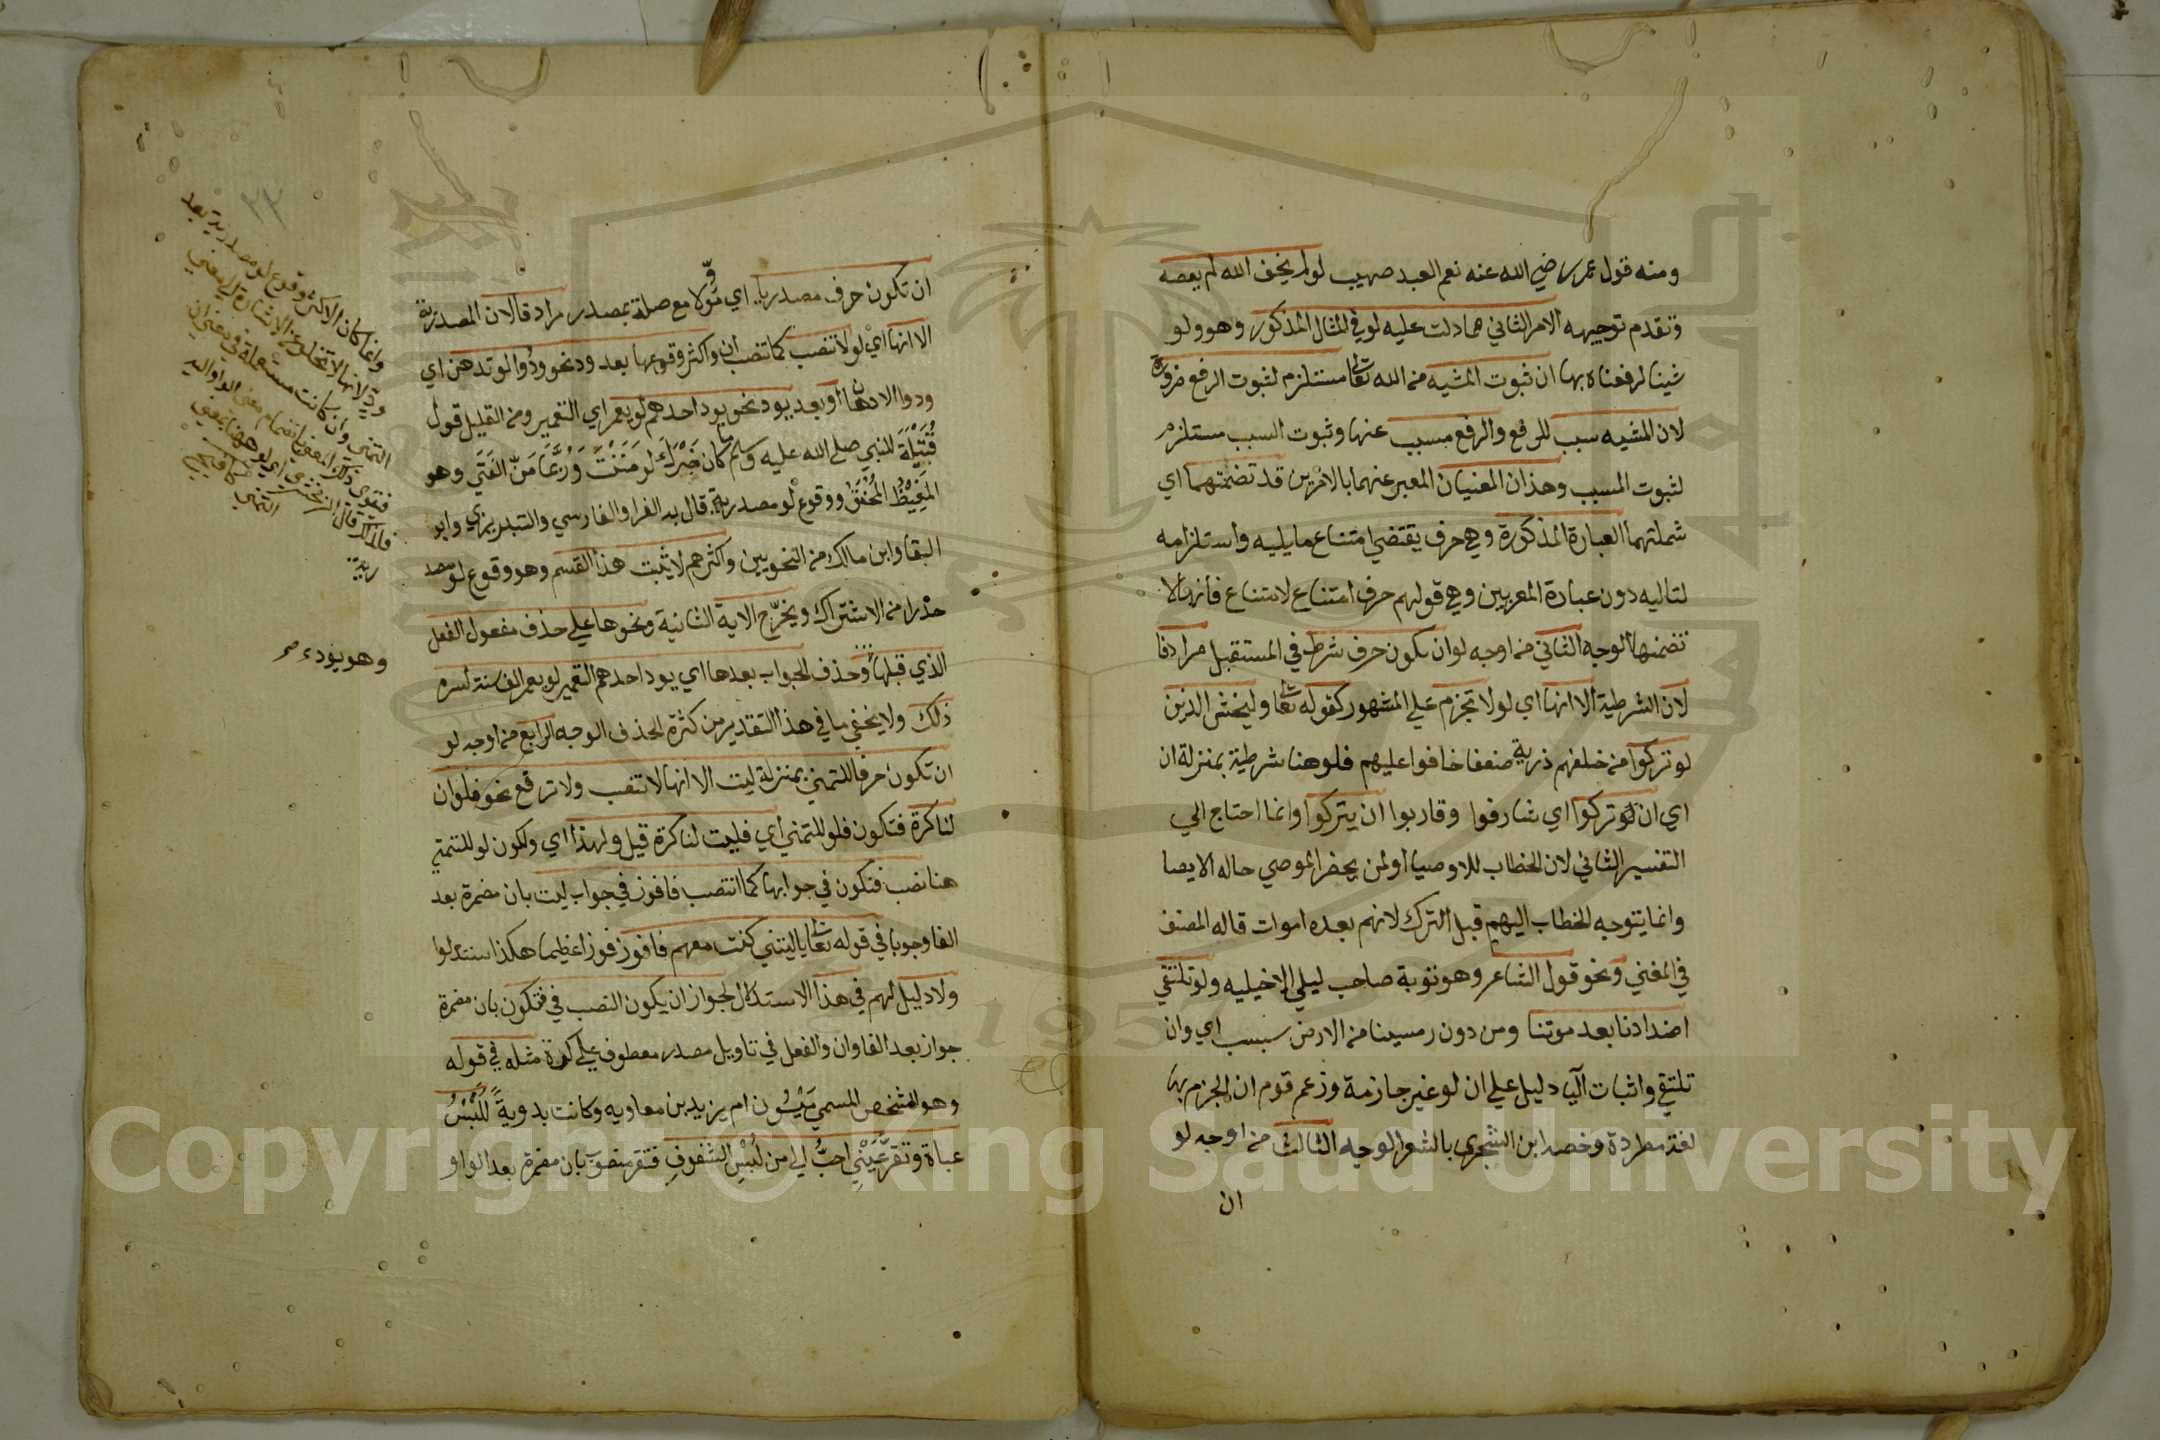 ومنه قول عمر رضي الله عنه نعم العبد صهيب لو لم يخف الله لم يعصه
وتقدم توجيهه الامر الثاني مما دلت عليه لو في المثال المذكور وهو ولو
شينا لرفعناه بها ان ثبوت المشيه من الله تعالى مستلزم لثبوت الرفع ضرورة
لان المشيه سبب للرفع والرفع مسبب عنها وثبوت السبب مستلزم
لثبوت المسبب وهذان المعنيان المعبر عنهما بالامرين قد تضمنتهما اي
شملتهما العبارة المذكورة وهي حرف يقتضي امتناع ما يليه واستلزامه
لتاليه دون عبارة المعربين وهي قولهم حرف امتناع لامتناع فانها لا
تضمنها الوجه الثاني من اوجه لو ان تكون حرف شرط في المستقبل مرادفا
لان الشرطية الا انها اي لو لا تجزم علي المشهور كقوله تعالى وليخش الذين
لو تركوا من خلفهم ذرية ضعفا خافوا عليهم فلو هنا شرطية بمنزلة ان
اي ان لو تركوا اي شارفوا وقاربوا ان يتركوا وانما احتاج الي
التفسير الثاني لان الخطاب للاوصيا او لمن يحضر الموصي حاله الايصا
وانما يتوجه الخطاب اليهم قبل الترك لانهم بعده اموات قاله المصنف
في المغني ونحو قول الشاعر وهو توبة صاحب ليلي الاخيليه ولو تلتقي
اصداونا بعد موتنا ومن دون رمسينا من الارض سبسب اي وان
تلتقي واثبات اليا دليل علي ان لو غير جازمة وزعم قوم ان الجزم بها
لغة مطردة وخصه ابن الشجري بالشعر الوجه الثالث من اوجه لو
ان
ان تكون حرف مصدريا اي مؤولا مع صلة بمصدر مرادفا لان المصدرية
الا انها اي لو لا تنصب كما تنصب ان واكثر وقوعها بعد ود نحو ودوا لو تدهن اي
ودوا الادهان او بعد يود نحو يود احدهم لو يعمر اي التعمير ومن القليل قول
قُتَيْلَةَ للنبي صلي الله عليه وسلم ما كان ضَرَّكَ لو مَنَنْتَ وَرُبَّمَا مَنَّ الفَتَي وهو
المَغِيْظُ المُحْنَقُ ووقوع لو مصدرية قال به الفرا والفارسي والتبريزي وابو
البقا وابن مالك من النحويين واكثرهم لا يثبت هذا القسم وهو وقوع لو مصد
حذرا من الاشتراك ويخرّج الاية الثانية ونحوها علي حذف مفعول الفعل
الذي قبلها وحذف الجواب بعدها اي يود احدهم التعمير لو يعمر الف سنة لسره
ذلك ولا يخفي ما في هذا التقدير من كثرة الحذف الوجه الرابع من اوجه لو
ان تكون حرفا للتمني بمنزلة ليت الا انها لا تنصب ولا ترفع نحو فلو ان
لنا كرة فتكون فلو للتمني اي فليت لنا كرة قيل ولهذا اي ولكون لو للتمني
هنا نصب فنكون في جوابها كما انتصب فافوز في جواب ليت بان مضمرة بعد
الفا وجوبا في قوله تعالى يا ليتني كنت معهم فافوز فوزا عظيما هكذا استدلوا
ولا دليل لهم في هذا الاستدلال لجواز ان يكون النصب في فنكون بان مضمرة
جواز بعد الفا وان والفعل في تاويل مصدر معطوف علي كرة مثله في قوله
وهو الشخص المسمي مَيْسُون ام يزيد بن معاويه وكانت بدوية لَلُبْسُ
عباة وتقرَّ عَيْنِي احبُّ الي من لُبْسِ الشفوف فتقر منصوب بان مضمرة بعد الواو
وانما كان الاكثر وقوع لو مصدرية بعد
التمني وان كانت مستعملة
وهو يود صح
Copyright © King Saud University
195